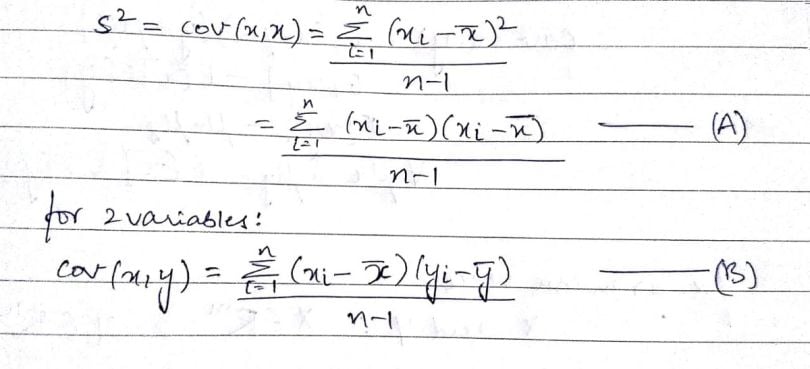 s² = cov(x,x) = Σⁿᵢ₌₁ (xᵢ - x̄)² / n-1
= Σⁿᵢ₌₁ (xᵢ - x̄)(xᵢ - x̄) / n-1 —— (A)
for 2 variables:
cov(x,y) = Σⁿᵢ₌₁ (xᵢ - x̄)(yᵢ - ȳ) / n-1 —— (B)